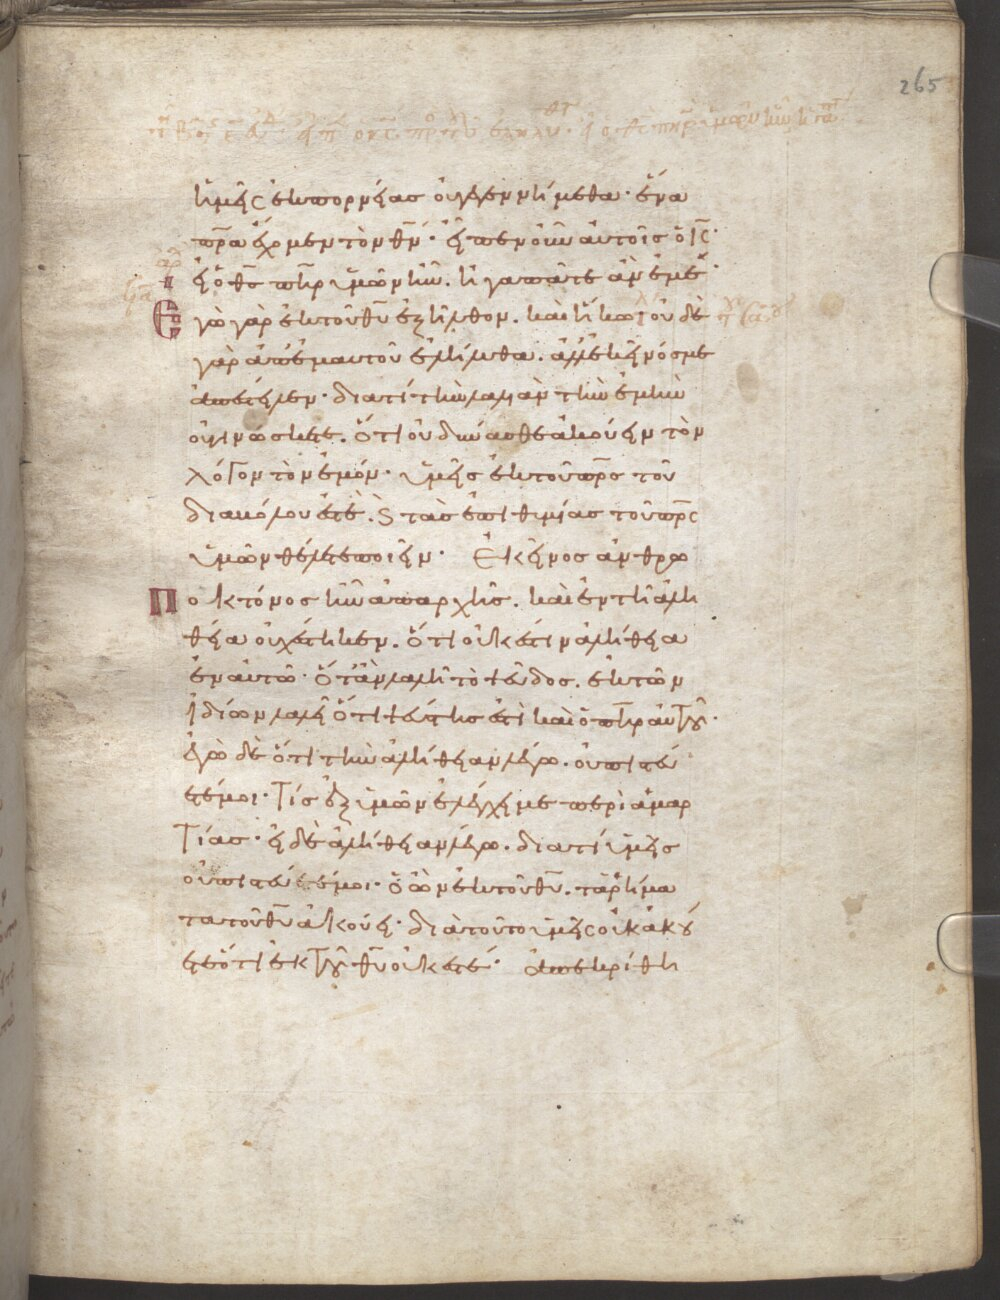 265
ἡμεῖς ἐκ πορνείας οὐ γεγεννήμεθα· ἕνα
πρ̅α ἔχομεν τὸν θν̅· εἶπεν οὖν αὐτοῖς ὁ ις̅·
εἰ ὁ θς̅ πη̅ρ ὑμῶν ἦν. ἠγαπᾶτε ἂν ἐμέ·
Ἐγὼ γὰρ ἐκ τοῦ θυ̅ ἐξῆλθον. καὶ ἥκω· οὐδὲ
γὰρ ἀπ' ἐμαυτοῦ ἐλήλυθα. ἀλλ' ἐκεῖνός με
ἀπέστειλεν· διατί τὴν λαλιὰν τὴν ἐμὴν
οὐ γινώσκετε. ὅτι οὐ δύνασθε ἀκούειν τὸν
λόγον τὸν ἐμόν· ὑμεῖς ἐκ τοῦ πρ̅ς τοῦ
διαβόλου ἐστέ. ϗ τὰς ἐπιθυμίας τοῦ πρ̅ς
ὑμῶν θέλετε ποιεῖν· Ἐκεῖνος ἀνθρω
Ποκτόνος ἦν ἀπαρχῆς. καὶ ἐν τῆ ἀλη
θεία οὐχ ἕστηκεν. ὅτι οὐκ ἔστιν ἀλήθεια
ἐν αὐτῶ· ὅτ' ἂν λαλῆ τὸ ψεῦδος. ἐκ τῶν
ἰδίων λαλεῖ ὅτι ψεύστης ἐστὶ καὶ ὁ πη̅ρ αὐτοῦ·
ἐγὼ δὲ ὅτι τὴν ἀλήθειαν λέγω. οὐ πιστεύ
ετέ μοι· Τίς ἐξ ὑμῶν ἐλέγχει με περὶ ἁμαρ
τίας· εἰ δὲ ἀλήθειαν λέγω. διατί ὑμεῖς
οὐ πιστεύετέ μοι· ὁ ὢν ἐκ τοῦ θυ̅. τὰ ῥήμα
τα τοῦ θυ̅ ἀκούει· διὰ τοῦτο ὑμεῖς οὐκ ἀκού
ετε ὅτι ἐκ τοῦ θυ̅ οὐκ ἐστέ· ἀπεκρίθη